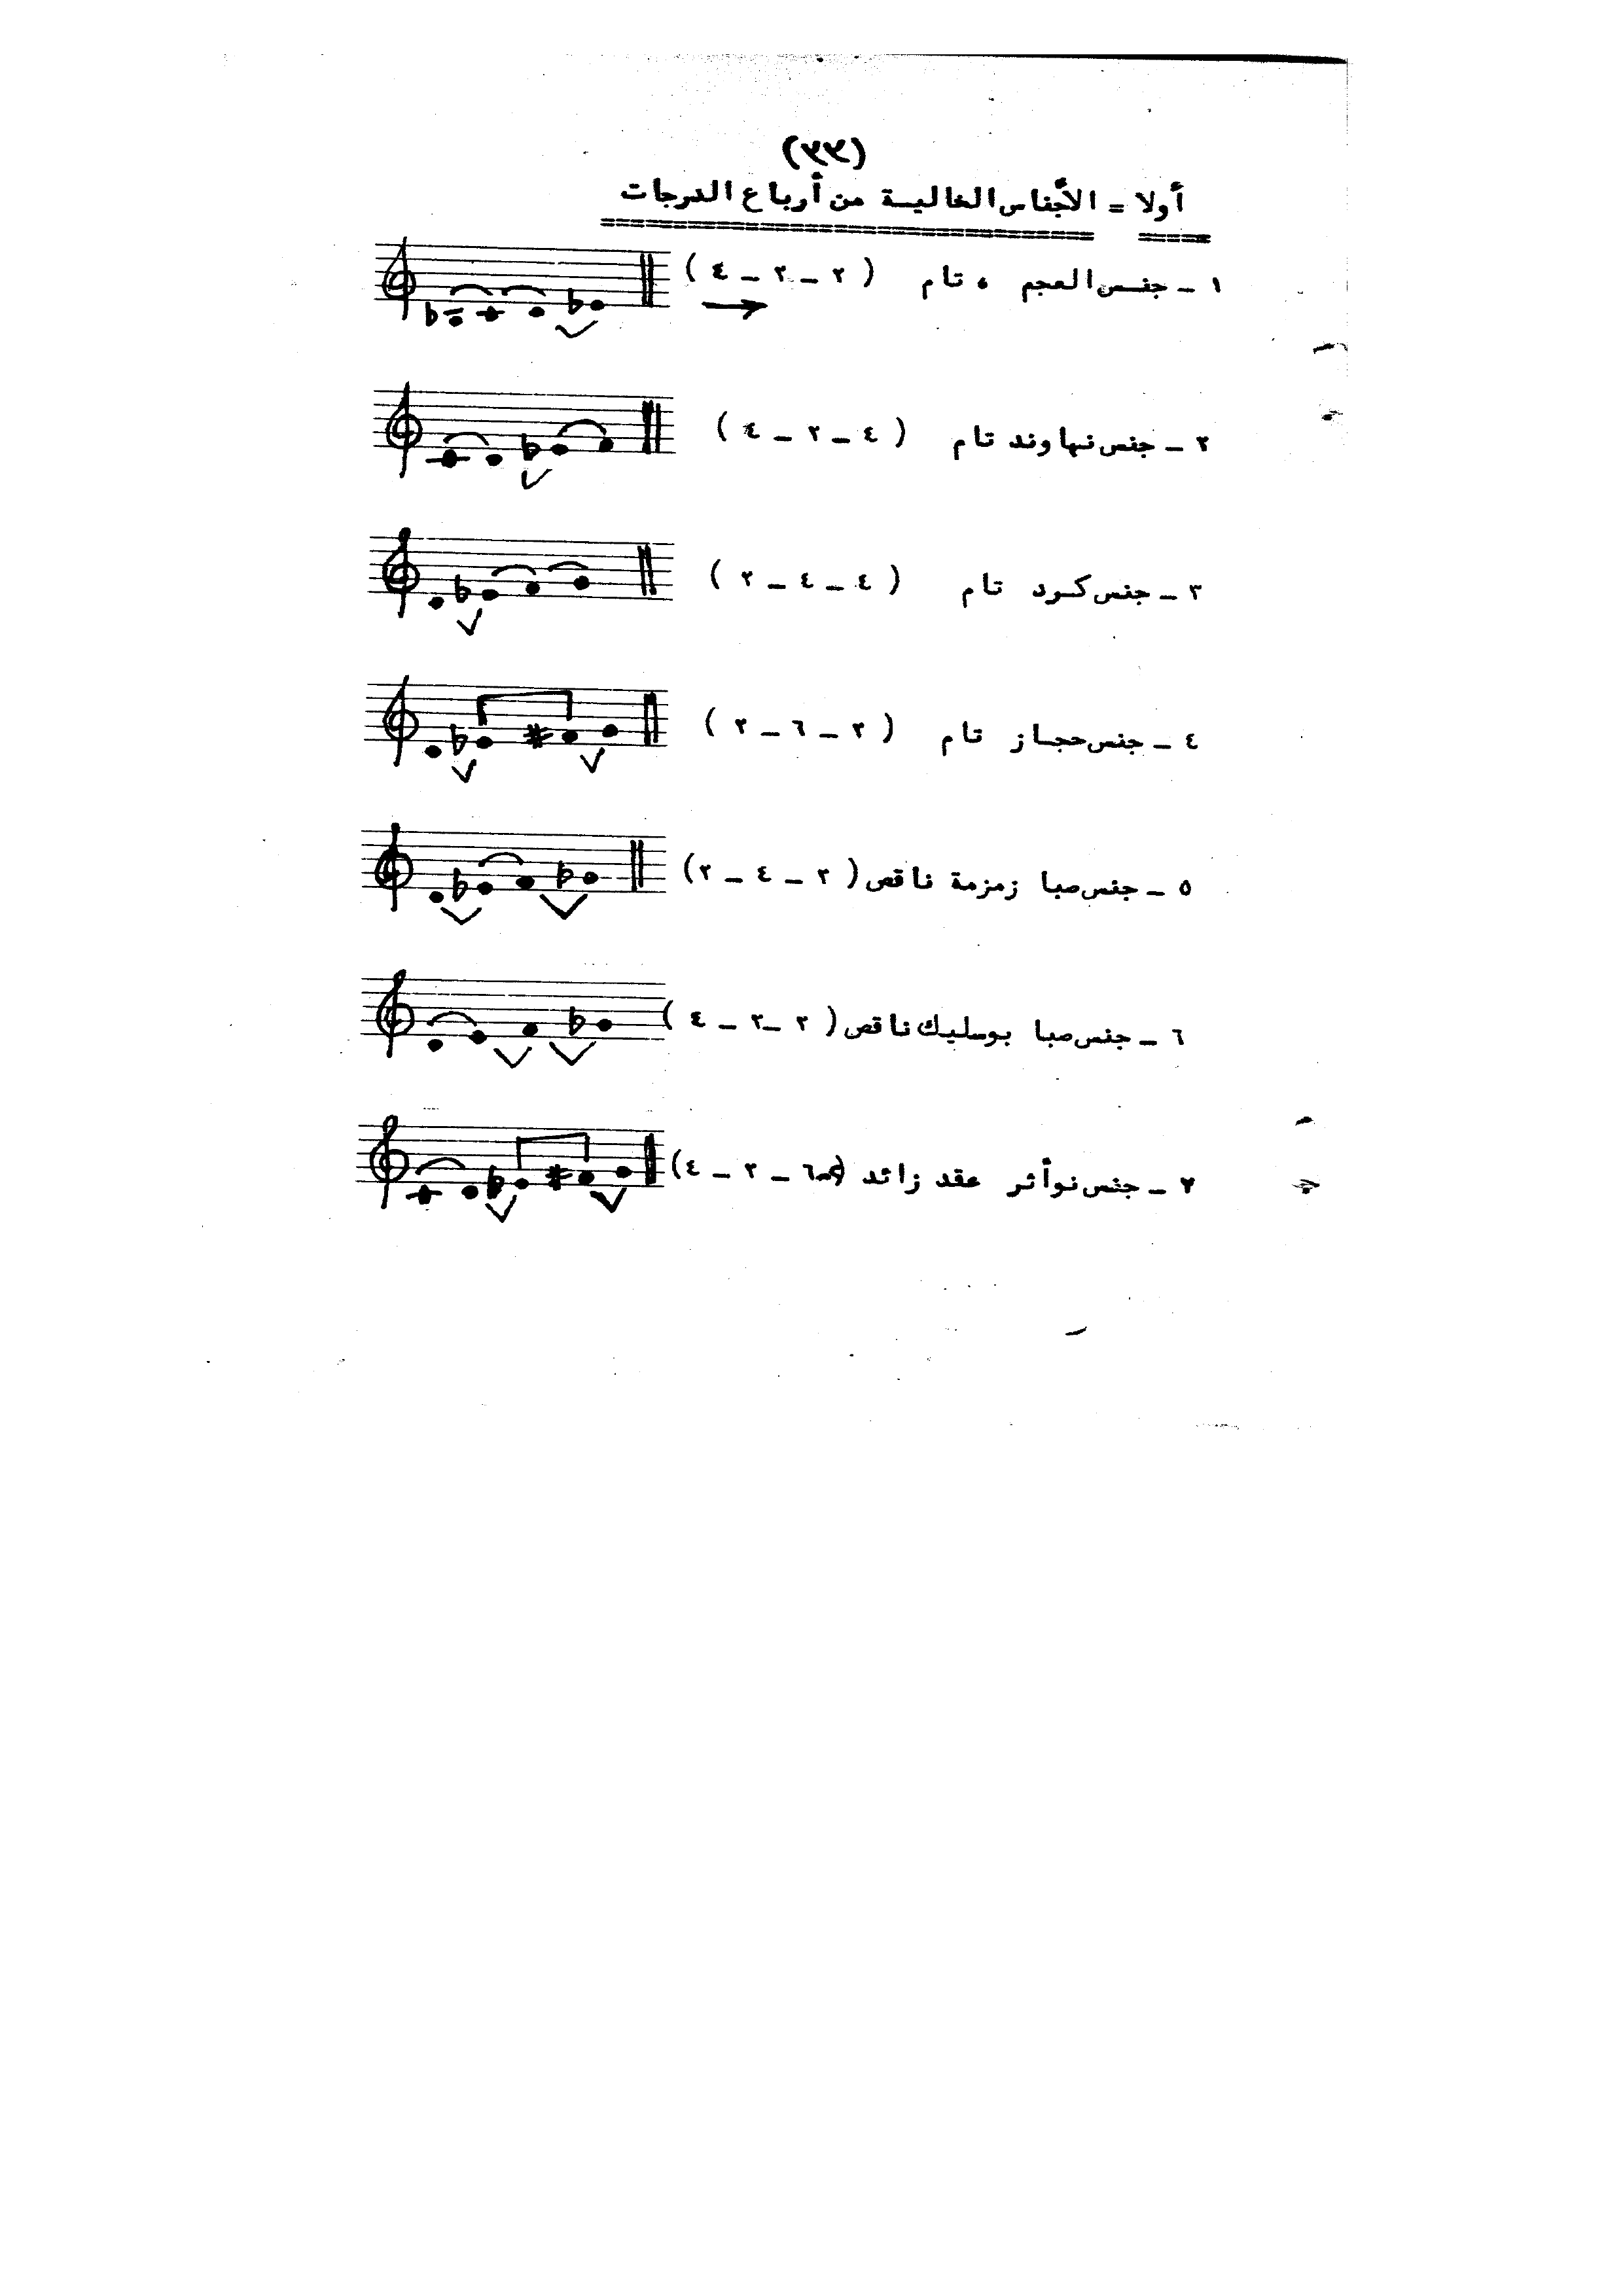 (٣٣)
أولا = الأجناس الخالية من أرباع الدرجات
١ - جنس العجم ، تام ( ٢ - ٢ - ٤ )
٢ - جنس نهاوند تام ( ٤ - ٢ - ٤ )
٣ - جنس كرد تام ( ٤ - ٤ - ٢ )
٤ - جنس حجاز تام ( ٢ - ٦ - ٢ )
٥ - جنس صبا زمزمة ناقص ( ٢ - ٤ - ٢ )
٦ - جنس صبا بوسليك ناقص ( ٢ - ٢ - ٤ )
٧ - جنس نوأثر عقد زائد ( ٦ - ٢ - ٤ )